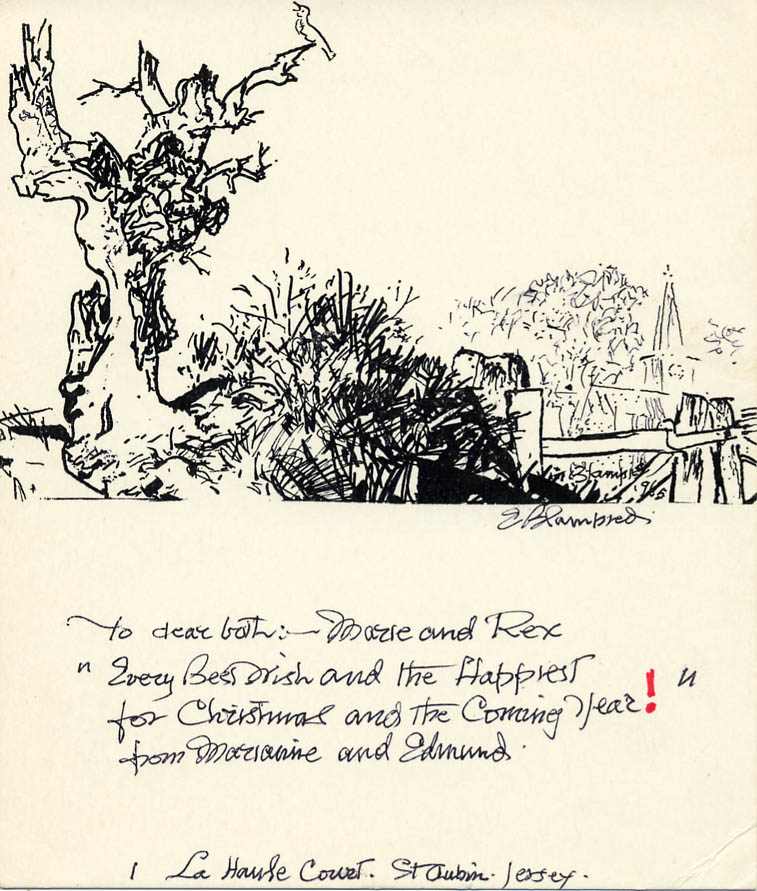 Blampied 1965
E Blampied
To dear both:— Marie and Rex
" Every Best Wish and the Happiest
for Christmas and the Coming Year! "
from Marianne and Edmund.
1 La Haule Court. St Aubin. Jersey.